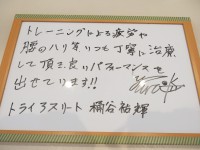 トレーニングによる疲労や
腰のハリをいつも丁寧に治療
して頂き良いパフォーマンスを
出せています!!
トライアスリート 桶谷祐輝